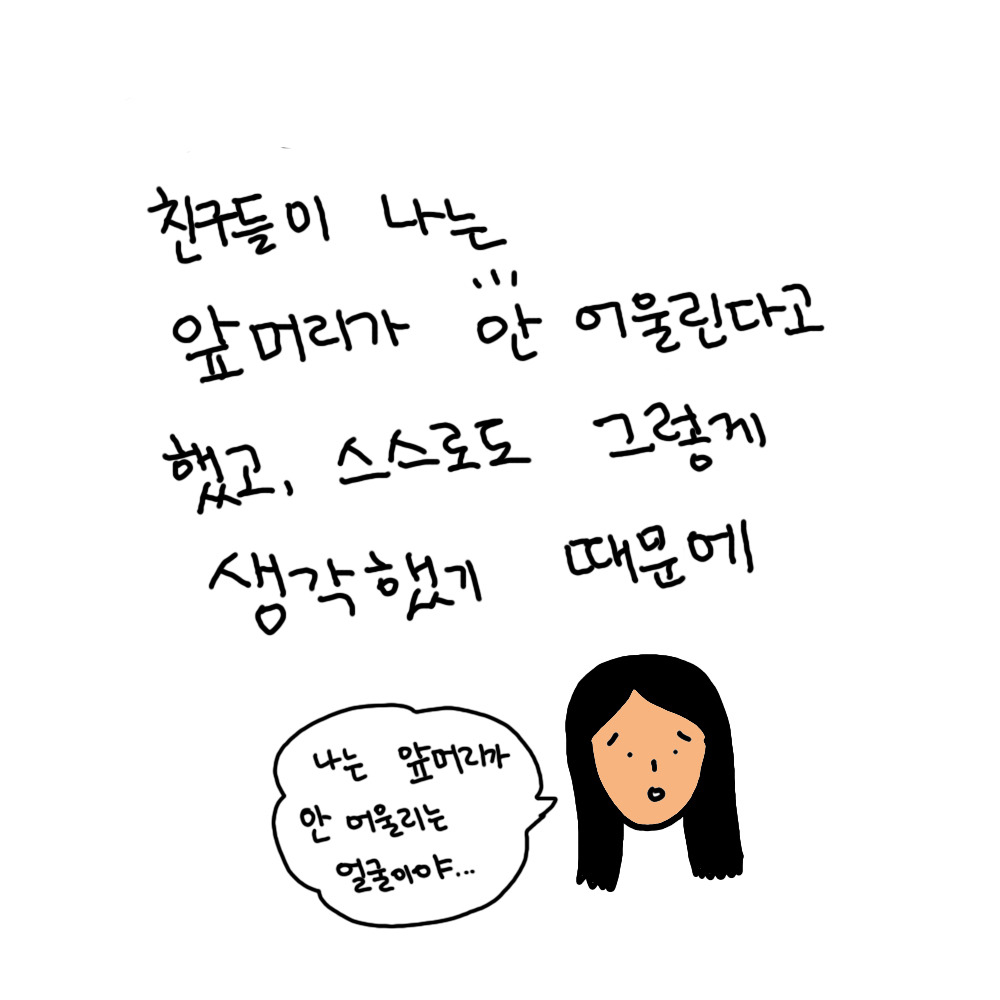 친구들이 나는
앞머리가 안 어울린다고
했고, 스스로도 그렇게
생각했기 때문에
나는 앞머리가
안 어울리는
얼굴이야...